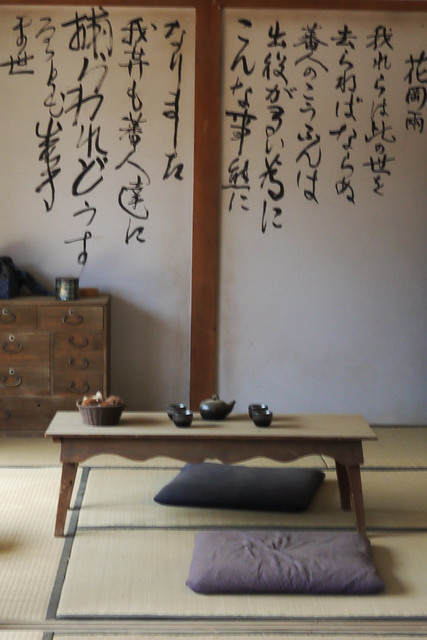 花岡両
我れらは此の世を
去らねばならぬ
蕃人のこうふんは
出役が多い為に
こんな事態に
なりました
我等も蕃人達に
捕らわれどうす
ることも出来ず
ま世